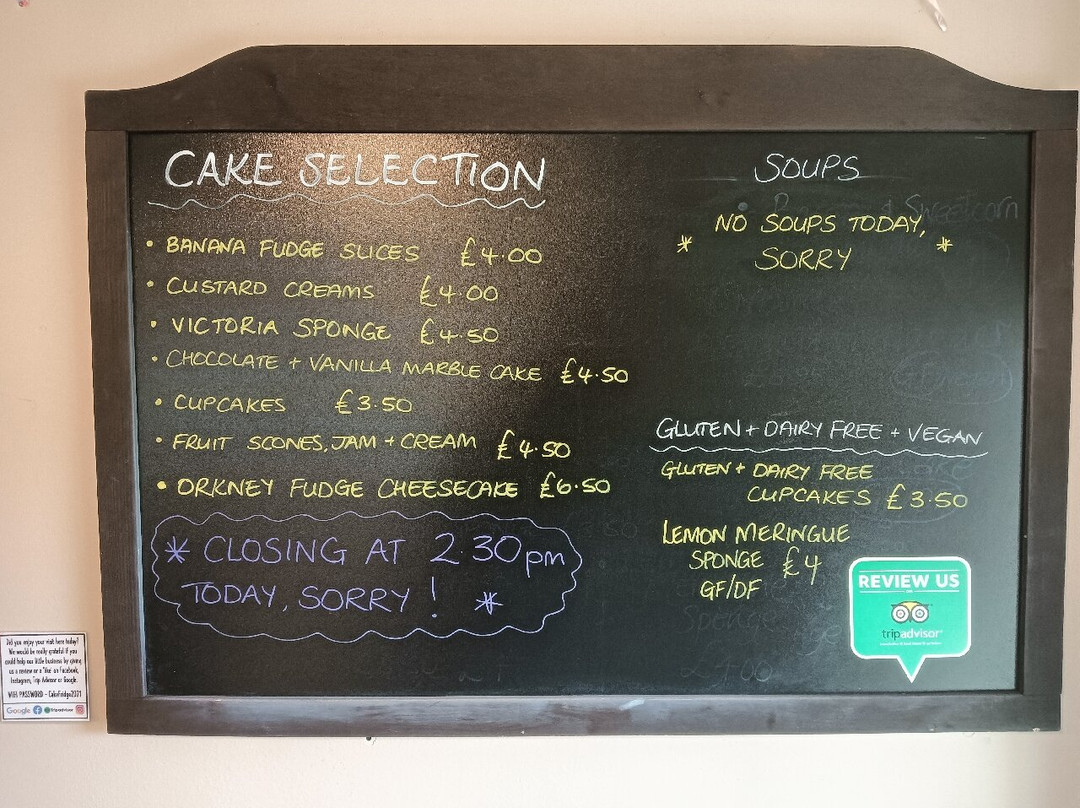 CAKE SELECTION
• BANANA FUDGE SLICES £4.00
• CUSTARD CREAMS £4.00
• VICTORIA SPONGE £4.50
• CHOCOLATE + VANILLA MARBLE CAKE £4.50
• CUPCAKES £3.50
• FRUIT SCONES, JAM + CREAM £4.50
• ORKNEY FUDGE CHEESECAKE £6.50
* CLOSING AT 2.30pm
TODAY, SORRY! *
SOUPS
Sweetcorn
* NO SOUPS TODAY, *
SORRY
GLUTEN + DAIRY FREE + VEGAN
GLUTEN + DAIRY FREE
CUPCAKES £3.50
LEMON MERINGUE
SPONGE £4
GF/DF
REVIEW US
tripadvisor
Did you enjoy your visit here today?
We would be really grateful if you
could help our little business by giving
us a review or a 'like' on Facebook,
Instagram, Trip Advisor or Google.
WIFI PASSWORD - CakeFridge2021
Google tripadvisor